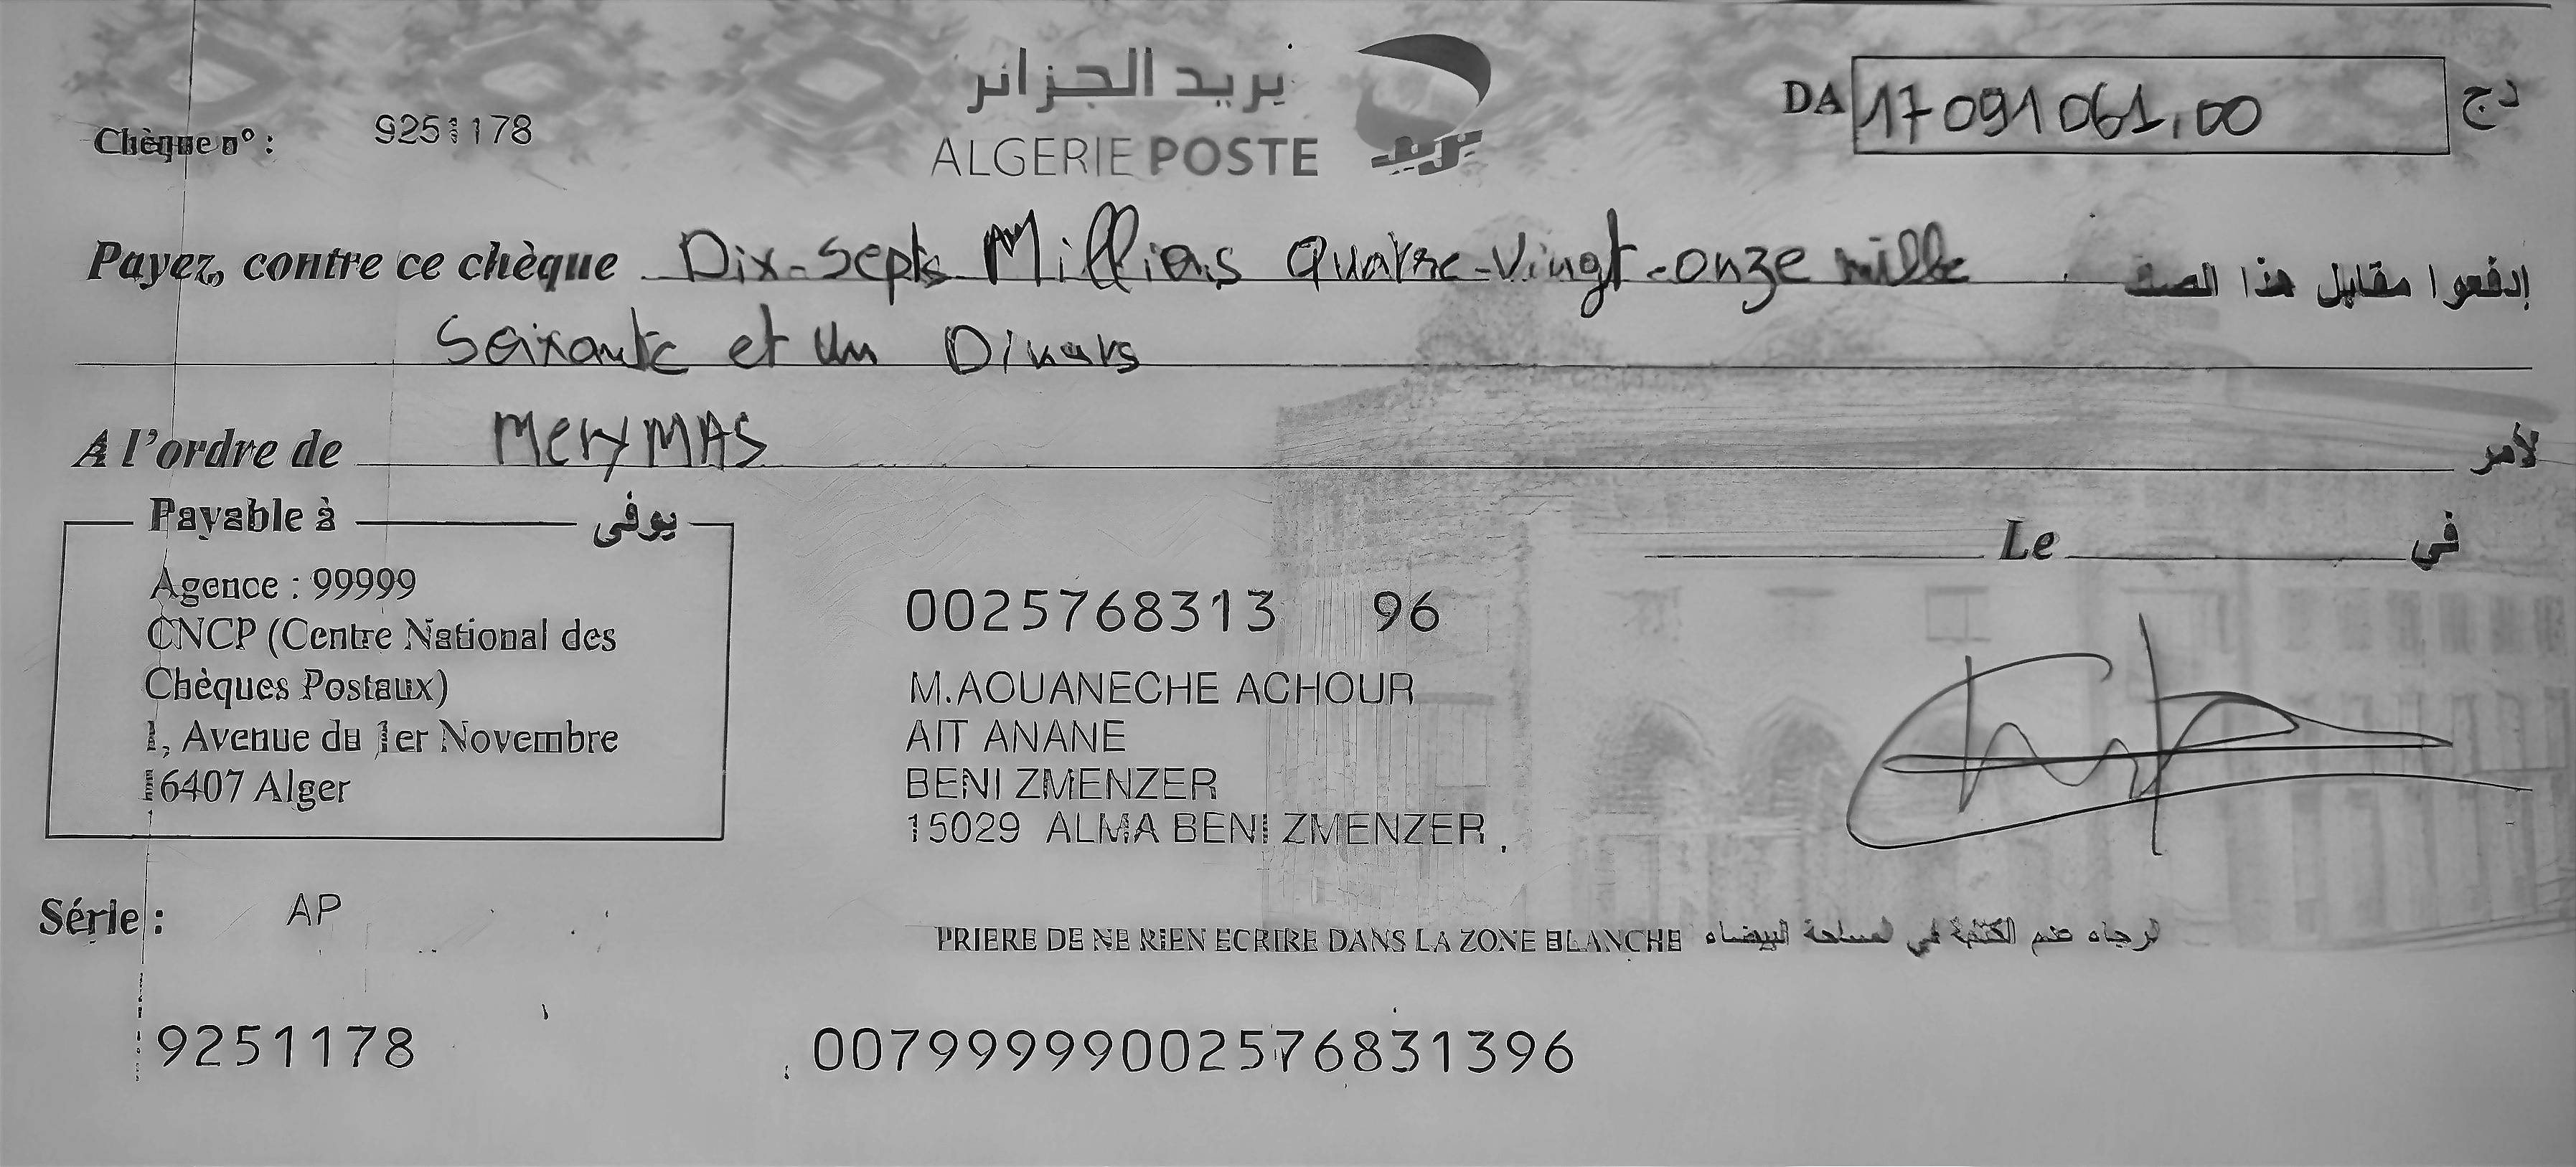 بريد الجزائر
ALGERIE POSTE
بريد
Chèque nº : 9251178
DA 17 091 061,00 دج
Payez, contre ce chèque Dix-Septs Millions Quatre-Vingt-onze mille إدفعوا مقابل هذا الصك
Soixante et un Dinars
A l'ordre de MeryMAS لأمر
Payable à يوفى
Agence : 99999
CNCP (Centre National des
Chèques Postaux)
1, Avenue du 1er Novembre
16407 Alger
Le في
0025768313 96
M.AOUANECHE ACHOUR
AIT ANANE
BENI ZMENZER
15029 ALMA BENI ZMENZER
Série : AP
PRIERE DE NE RIEN ECRIRE DANS LA ZONE BLANCHE الرجاء عدم الكتابة في المساحة البيضاء
9251178 00799999002576831396